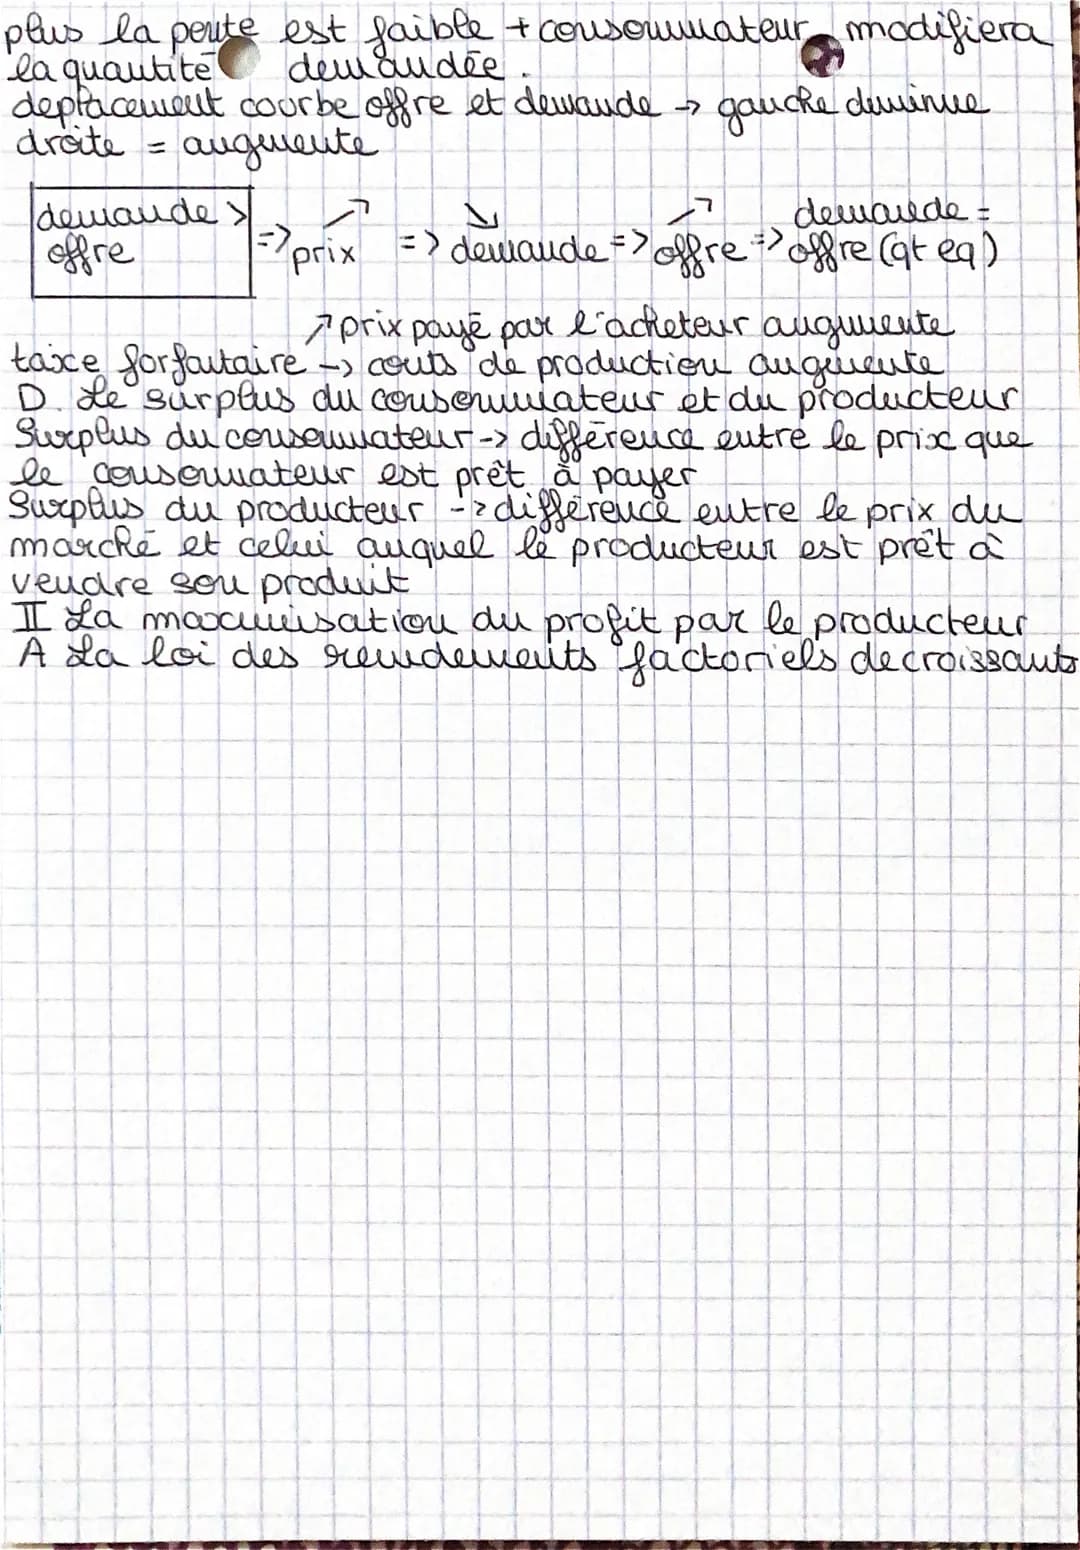 plus la pente est faible + consommateur modifiera
la quantité demandée.
deplacement courbe offre et demande → gauche diminue
droite = augmente
demande > offre => prix ↗ => demande ↘ => offre ↗ => demande = offre (qt eq)
↗ prix payé par l'acheteur augmente
taxe forfaitaire -> couts de production augmente
D. Le surplus du consommateur et du producteur
Surplus du consommateur -> différence entre le prix que
le consommateur est prêt à payer
Surplus du producteur -> différence entre le prix du
marché et celui auquel le producteur est prêt à
vendre son produit
II La maximisation du profit par le producteur
A La loi des rendements factoriels decroissants